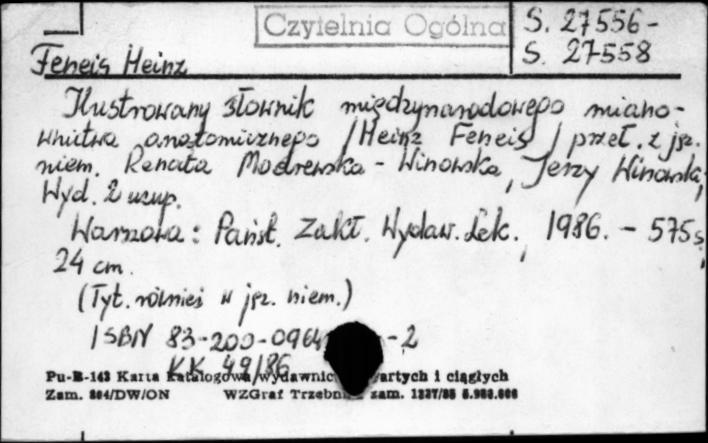 Czytelnia Ogólna
S. 27556-
S. 27558
Feneis Heinz
Ilustrowany słownik międzynarodowego miano-
wnictwa anatomicznego / Heinz Feneis / przeł. z jęz.
niem. Renata Modrewska - Winowska, Jerzy Winowski,
Wyd. 2 uzup.
Warszawa: Państ. Zakł. Wydaw. Lek., 1986. - 575 s,
24 cm.
(Tyt. również w jęz. niem.)
ISBN 83-200-0964 - 2
KK 49/86
Pu-B-143 Karta katalogowa wydawnic artych i ciągłych
Zam. 804/DW/ON WZGraf Trzebn zam. 1227/85